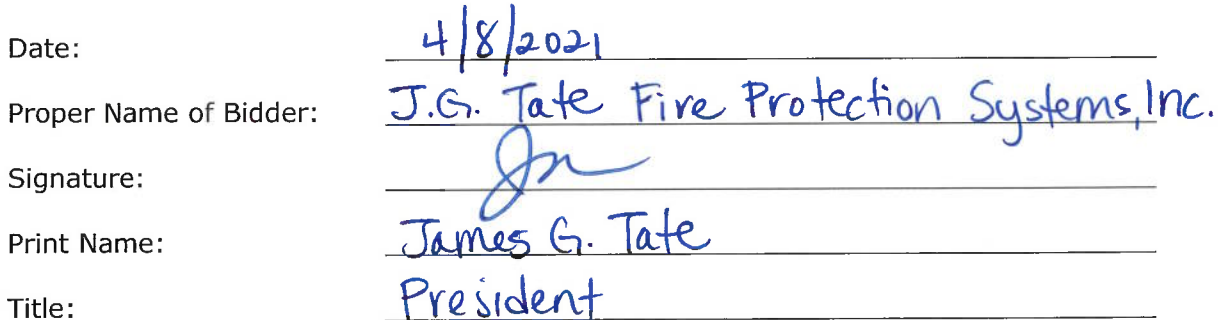 Date: 4/8/2021
Proper Name of Bidder: J.G. Tate Fire Protection Systems, Inc.
Signature:
Print Name: James G. Tate
Title: President